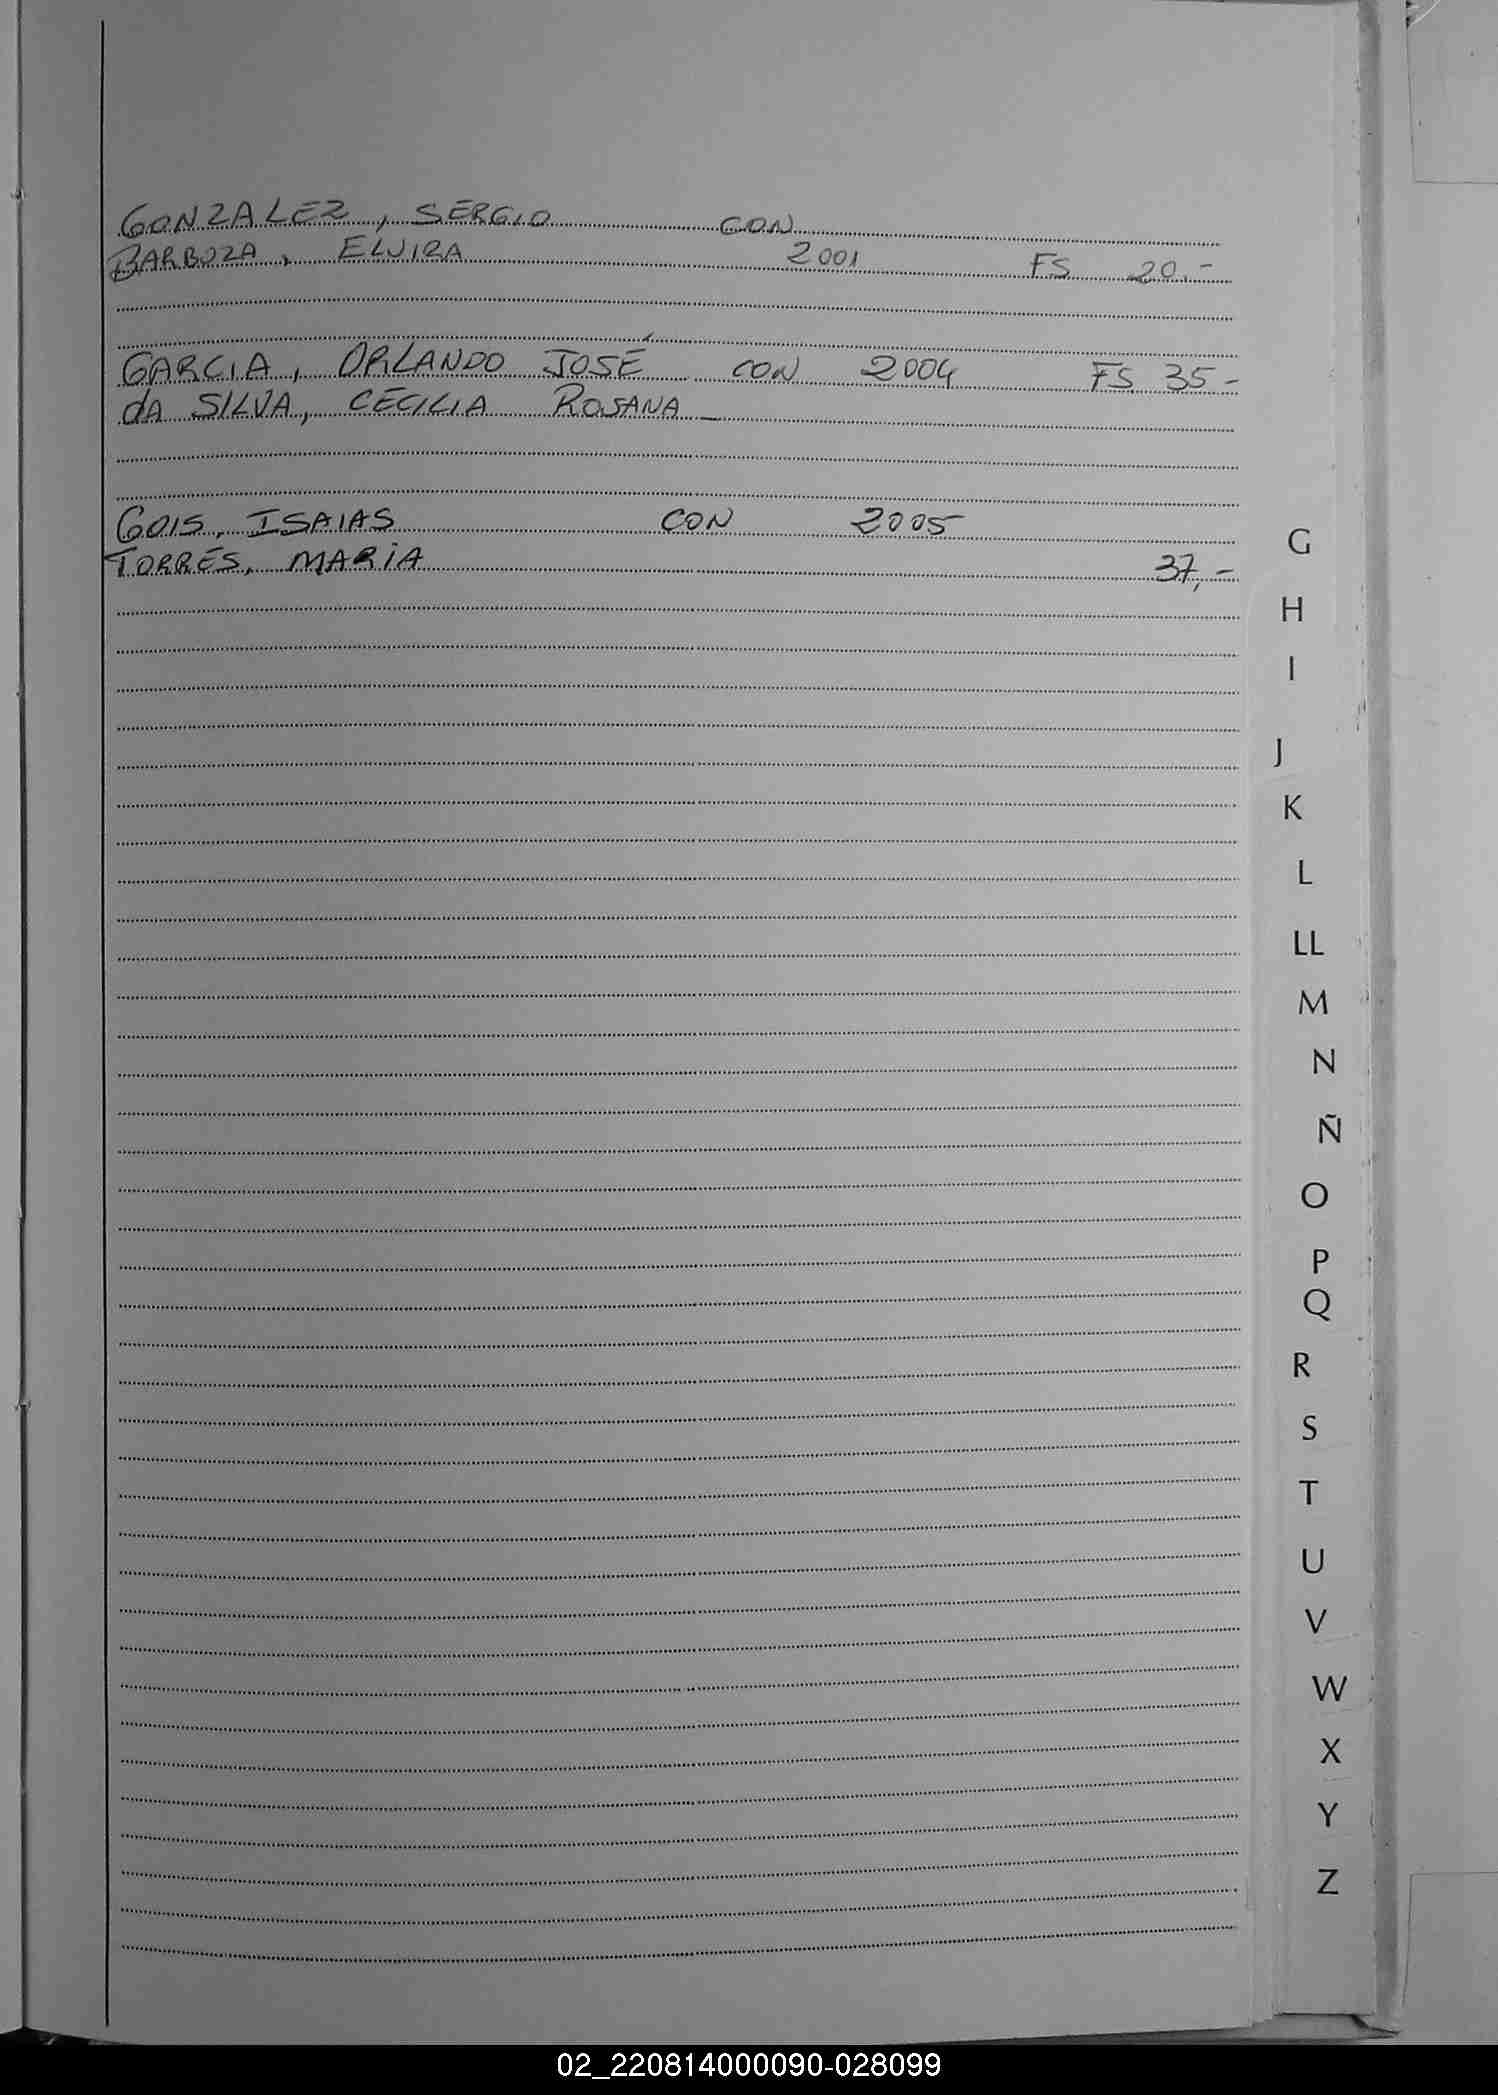 GONZALEZ, SERGIO CON
BARBOZA, ELVIRA 2001 FS 20.-
GARCIA, ORLANDO JOSÉ CON 2004 FS 35-
dA SILVA, CECILIA ROSANA -
GOIS, ISAIAS CON 2005
TORRES, MARIA 37,-
G
H
I
J
K
L
LL
M
N
Ñ
O
P
Q
R
S
T
U
V
W
X
Y
Z
02_220814000090-028099